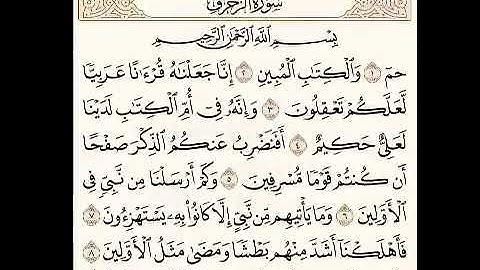 سُورَةُ الزُّخْرُفِ
بِسْمِ ٱللَّهِ ٱلرَّحْمَٰنِ ٱلرَّحِيمِ
حمٓ ١ وَٱلْكِتَٰبِ ٱلْمُبِينِ ٢ إِنَّا جَعَلْنَٰهُ قُرْءَٰنًا عَرَبِيًّا
لَّعَلَّكُمْ تَعْقِلُونَ ٣ وَإِنَّهُۥ فِىٓ أُمِّ ٱلْكِتَٰبِ لَدَيْنَا
لَعَلِىٌّ حَكِيمٌ ٤ أَفَنَضْرِبُ عَنكُمُ ٱلذِّكْرَ صَفْحًا
أَن كُنتُمْ قَوْمًا مُّسْرِفِينَ ٥ وَكَمْ أَرْسَلْنَا مِن نَّبِىٍّ فِى
ٱلْأَوَّلِينَ ٦ وَمَا يَأْتِيهِم مِّن نَّبِىٍّ إِلَّا كَانُوا۟ بِهِۦ يَسْتَهْزِءُونَ ٧
فَأَهْلَكْنَآ أَشَدَّ مِنْهُم بَطْشًا وَمَضَىٰ مَثَلُ ٱلْأَوَّلِينَ ٨